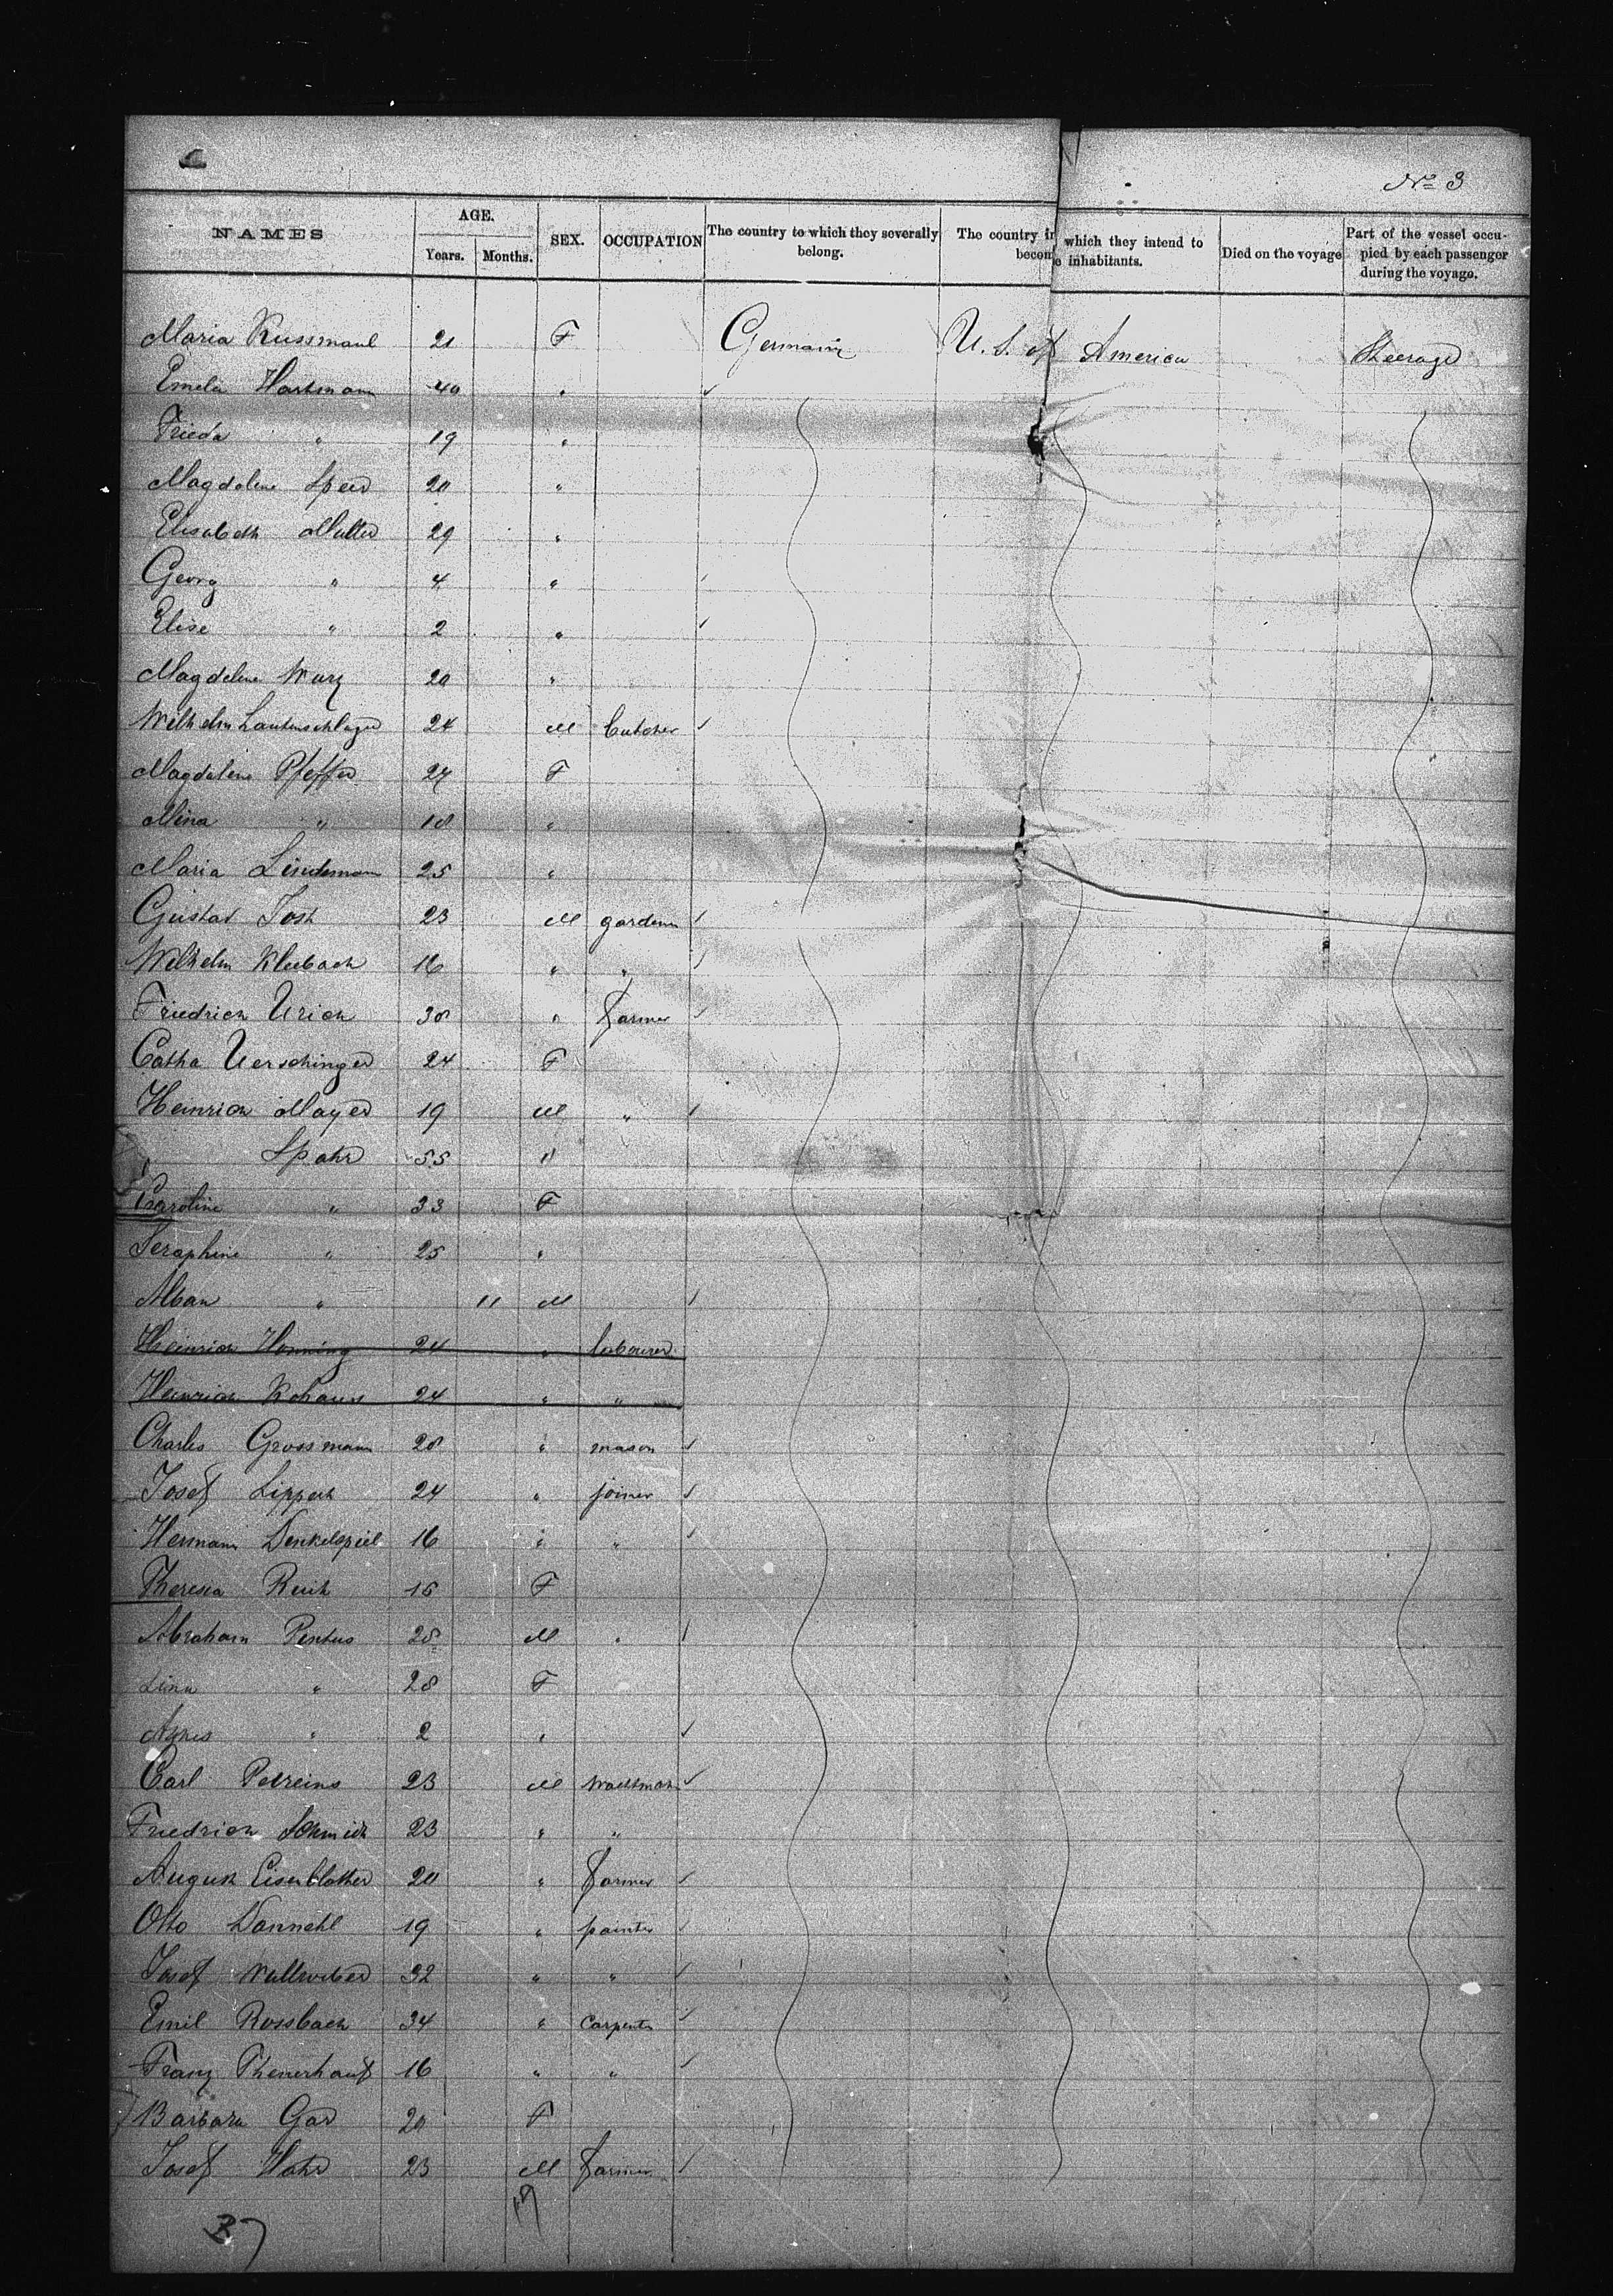 No 3
NAMES AGE. Years. Months. SEX. OCCUPATION The country to which they severally belong. The country in which they intend to become inhabitants. Died on the voyage Part of the vessel occupied by each passenger during the voyage.
Maria Kussmaul 21 F Germany U. S. of America Steerage
Emela Hartmann 40 "
Frieda " 19 "
Magdalene 20 "
Elisabeth Muller 29 "
Georg " 4 "
Elise " 2 "
Magdalene Wurz 20 "
Wilhelm Lautenschlager 24 M butcher
Magdalene Pfeffer F
Mina " 18 "
Maria Lindemann 25 "
Gustav Jost 23 M gardener
Wilhelm Kleebach 16 " "
Friedrich Urich 38 " farmer
Catha Uerschinger 24 F
Heinrich Mayer 19 M "
Spahr 55 "
Caroline " 33 F
Seraphine " 25 "
Alban " 11 M
Heinrich Henning 24 " labourer
Heinrich 24 " "
Charles Grossmann 28 " mason
Josef Lippert 24 " joiner
Hermann Denkelspiel 16 " "
Theresia 16 F
Abraham Pentus 28 M "
Lina " 28 F
Agnes " 2 "
Carl 23 M
Friedrich Schmidt 23 " "
August Eisenblatter 20 " farmer
Otto Dannehl 19 " painter
Josef 32 " "
Emil Rossbach 34 " carpenter
Franz 16 " "
Barbara 20 F
Josef 23 M farmer
37 19